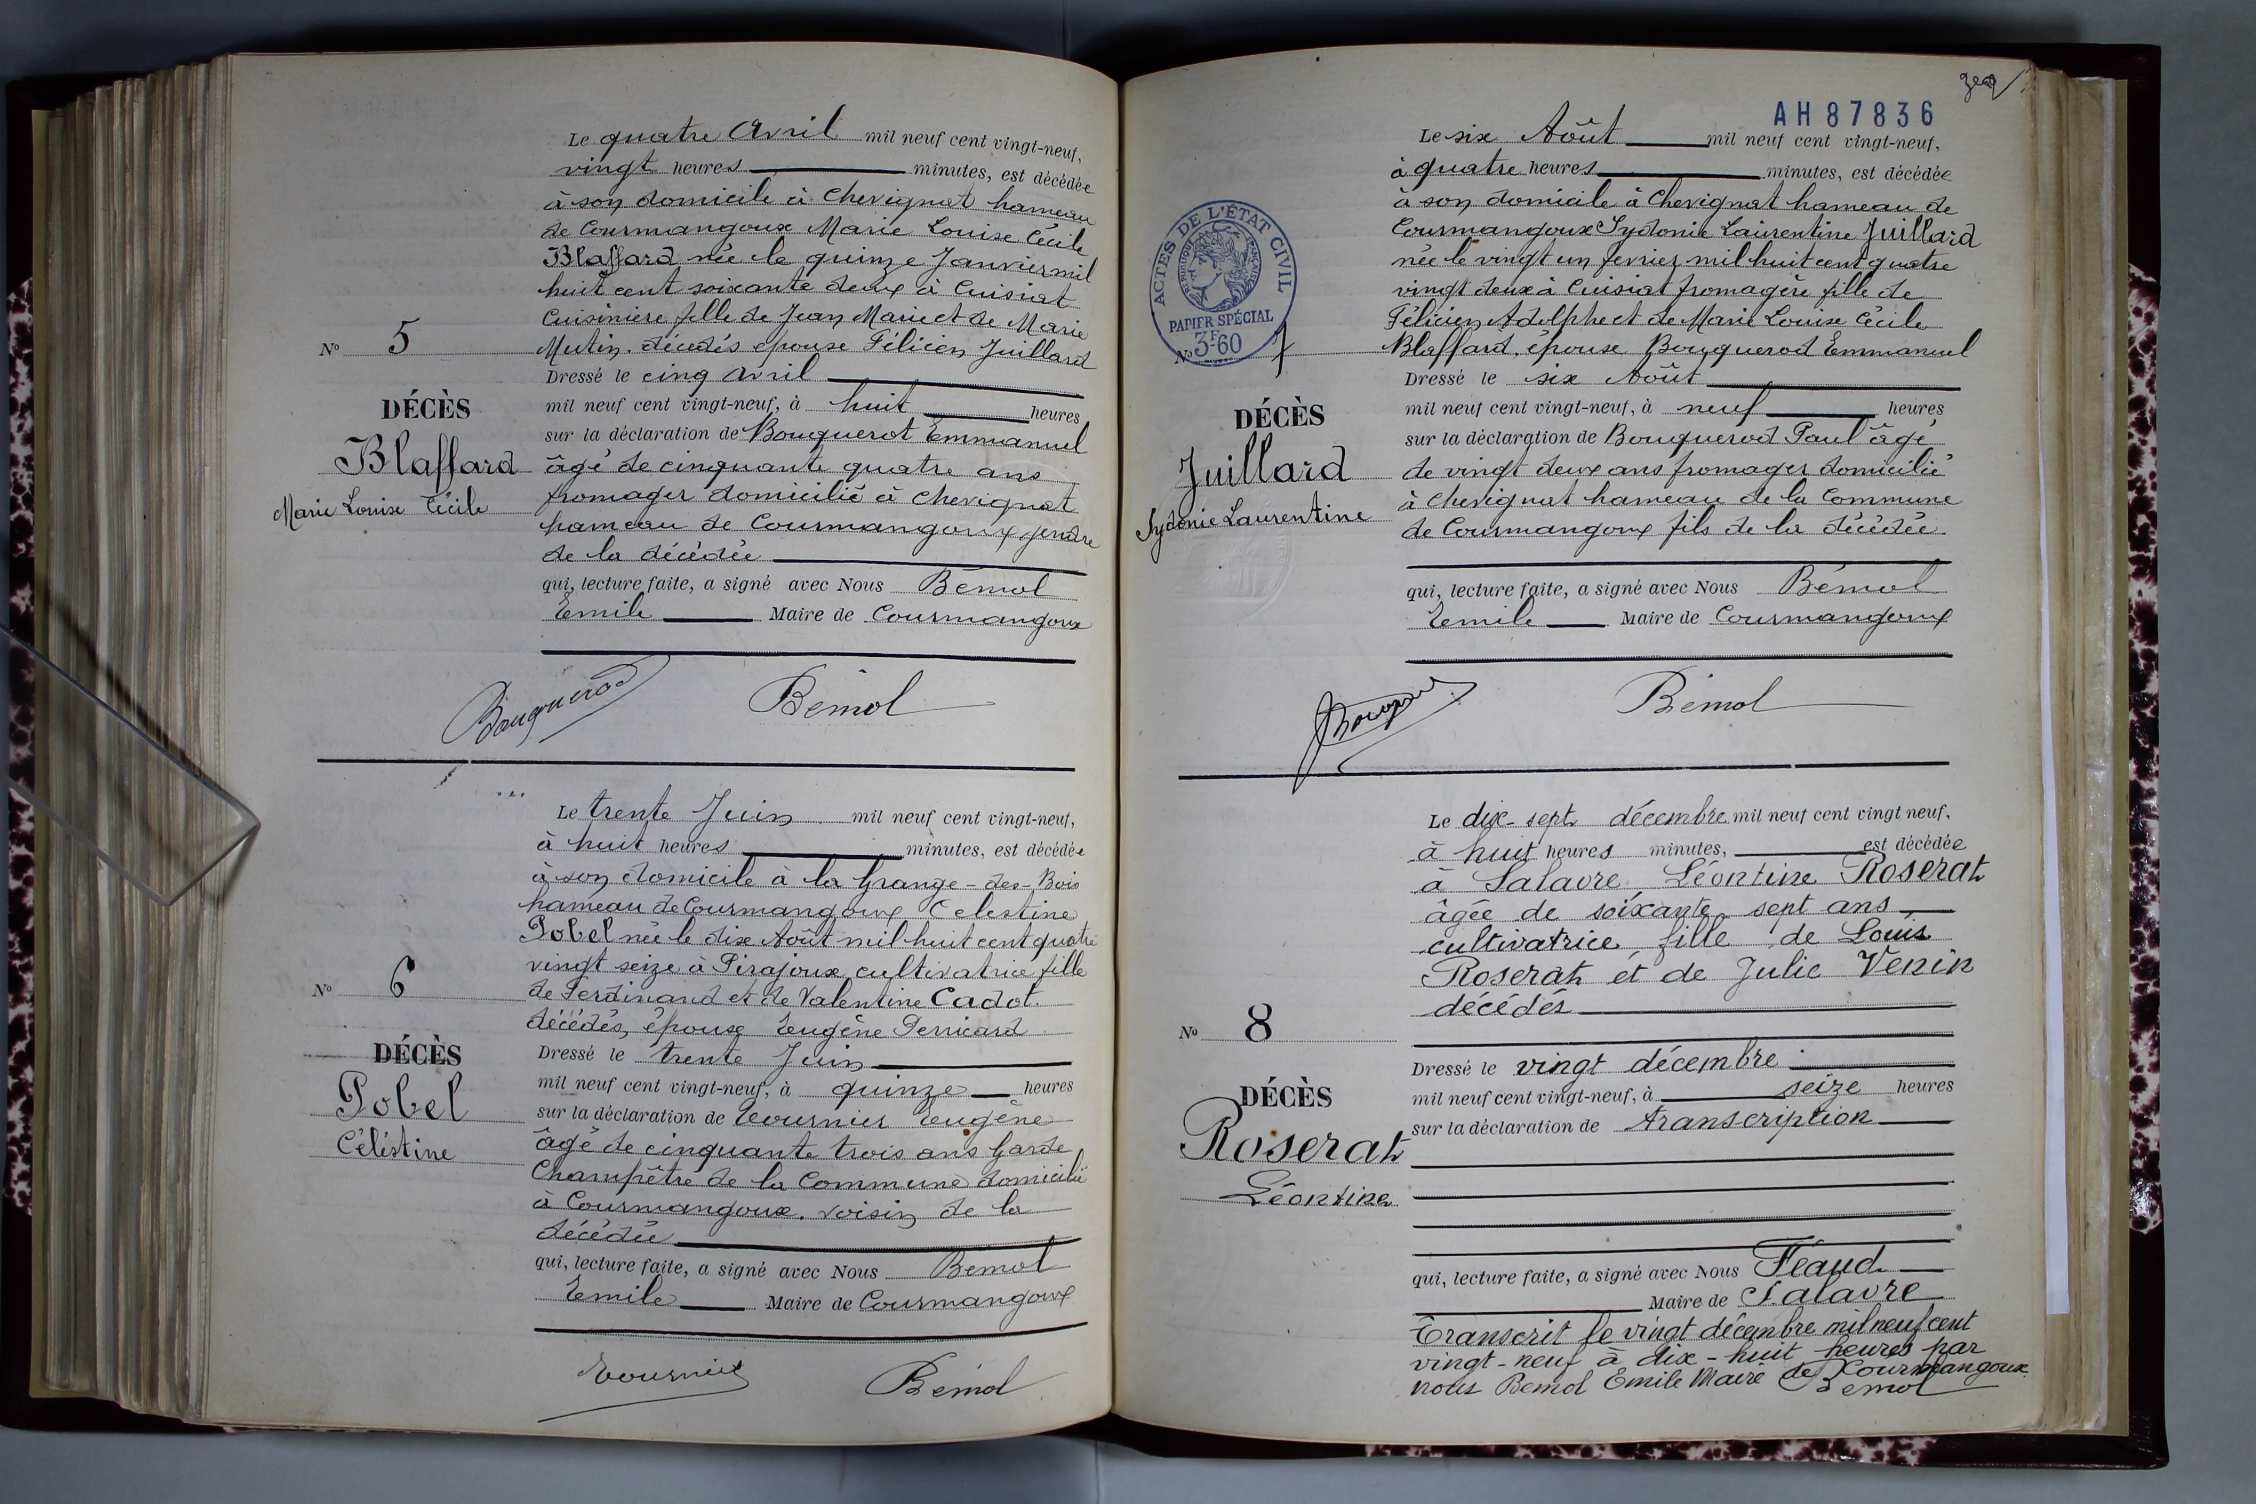 Le quatre Avril mil neuf cent vingt-neuf,
vingt heures minutes, est décédée
à son domicile à Chevignat hameau
de Courmangoux Marie Louise Cécile
Blaffard née le quinze Janvier mil
huit cent soixante deux à Cuisiat
Cuisinière fille de Jean Marie et de Marie
Mutin. décédés épouse Félicien Juillard
No 5
Dressé le cinq Avril
mil neuf cent vingt-neuf, à huit heures
DÉCÈS
sur la déclaration de Bouquerot Emmanuel
Blaffard
âgé de cinquante quatre ans
Marie Louise Cécile
fromager domicilié à Chevignat
hameau de Courmangoux gendre
de la décédée
qui, lecture faite, a signé avec Nous Bémol
Emile Maire de Courmangoux
Bouquerod Bémol
Le trente Juin mil neuf cent vingt-neuf,
à huit heures minutes, est décédée
à son domicile à la Grange-des-Bois
hameau de Courmangoux Celestine
Pobel née le dix Août mil huit cent quatre
vingt seize à Pirajoux cultivatrice fille
No 6
de Ferdinand et de Valentine Cadot.
décédés, épouse Eugène Perricard
DÉCÈS
Dressé le trente Juin
mil neuf cent vingt-neuf, à quinze heures
Pobel
sur la déclaration de Tournier Eugène
Céléstine
âgé de cinquante trois ans Garde
Champêtre de la Commune domicilié
à Courmangoux. voisin de la
décédée
qui, lecture faite, a signé avec Nous Bemol
Emile Maire de Courmangoux
Tournier Bémol
AH87836
Le six Août mil neuf cent vingt-neuf,
à quatre heures minutes, est décédée
à son domicile à Chevignat hameau de
Courmangoux Sydonie Laurentine Juillard
née le vingt un fevrier mil huit cent quatre
vingt deux à Cuisiat fromagère fille de
Félicien Adolphe et de Marie Louise Cécile
Blaffard, épouse Bouquerod Emmanuel
ACTES DE L'ÉTAT CIVIL
RÉPUBLIQUE FRANÇAISE
PAPIER SPÉCIAL
3F60
No 7
Dressé le six Août
mil neuf cent vingt-neuf, à neuf heures
DÉCÈS
sur la déclaration de Bouquerod Paul âgé
Juillard
de vingt deux ans fromager domicilié
Sydonie Laurentine
à Chevignat hameau de la Commune
de Courmangoux fils de la décédée
qui, lecture faite, a signé avec Nous Bémol
Emile Maire de Courmangoux
Bémol
Le dix-sept décembre mil neuf cent vingt neuf,
à huit heures minutes, est décédée
à Salavre Léontine Roserat
âgée de soixante sept ans
cultivatrice fille de Louis
Roserat et de Julie Venin
décédés
No 8
Dressé le vingt décembre
DÉCÈS
mil neuf cent vingt-neuf, à seize heures
sur la déclaration de transcription
Roserat
Léontine
qui, lecture faite, a signé avec Nous Féaud
Maire de Salavre
Transcrit le vingt décembre mil neuf cent
vingt-neuf à dix-huit heures par
nous Bemol Emile Maire de Courmangoux
Bémol